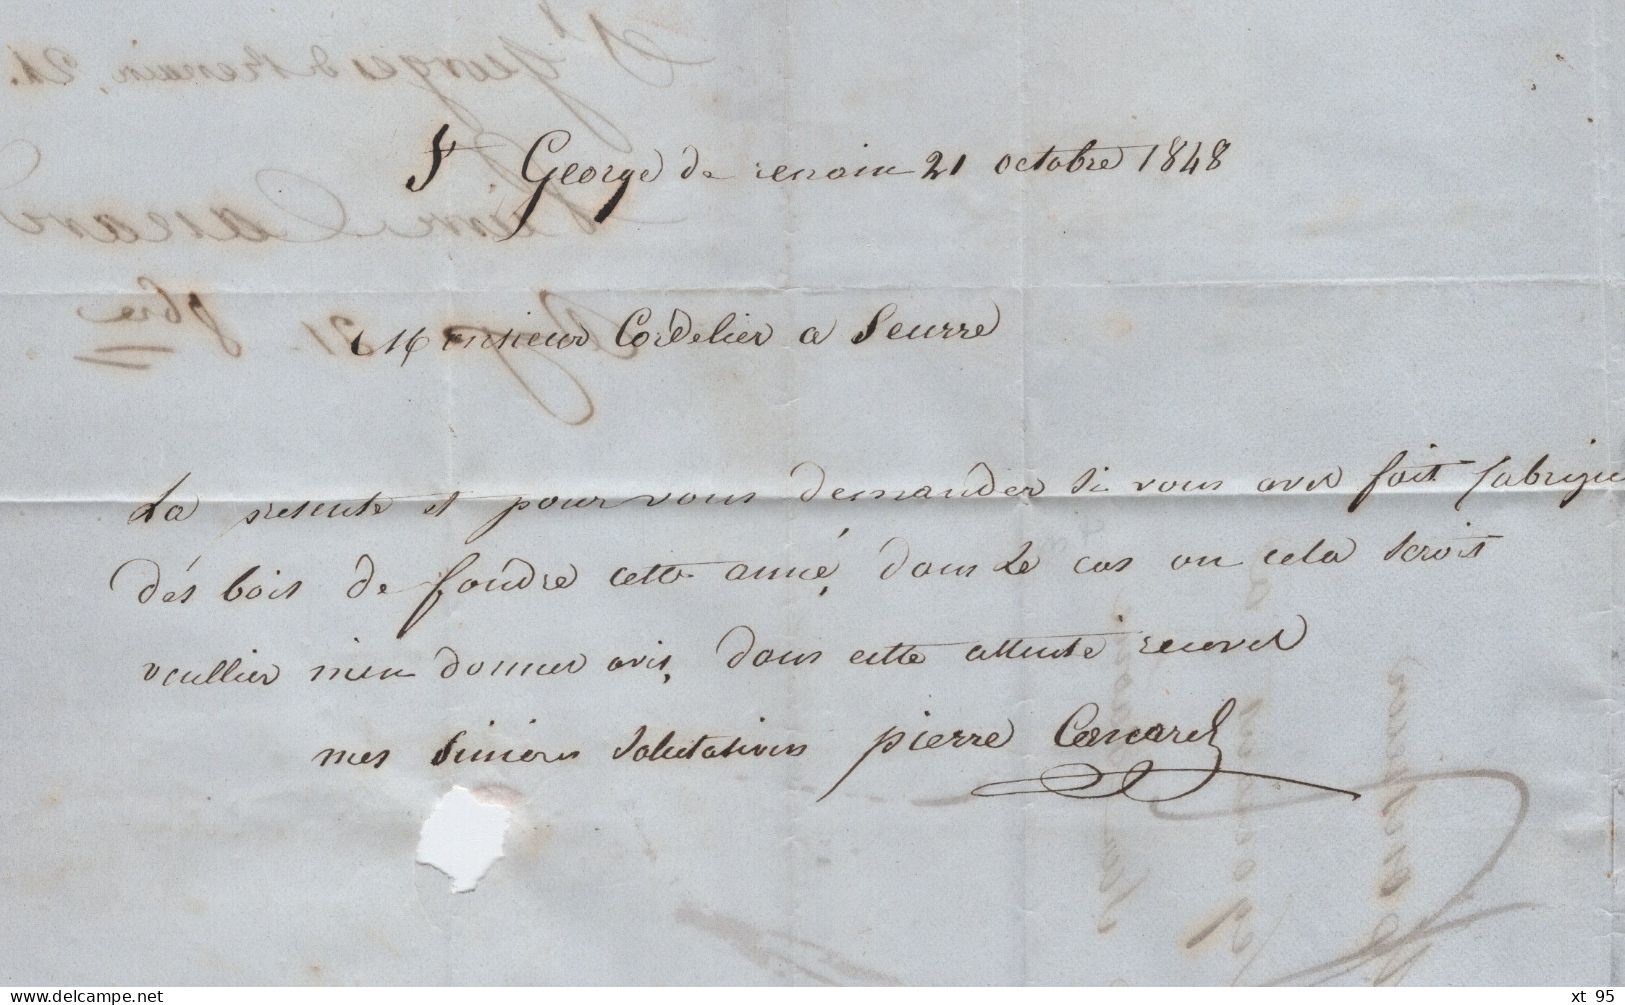 St George de renain 21 octobre 1848
Monsieur Cordelier a Seurre
La presente et pour vous demander si vous avez fait fabrique
dés bois de fondre cette année, dans le cas ou cela seroit
veullier men donner avis, dans cette attente recevez
mes sinieres salutations pierre
xt 95